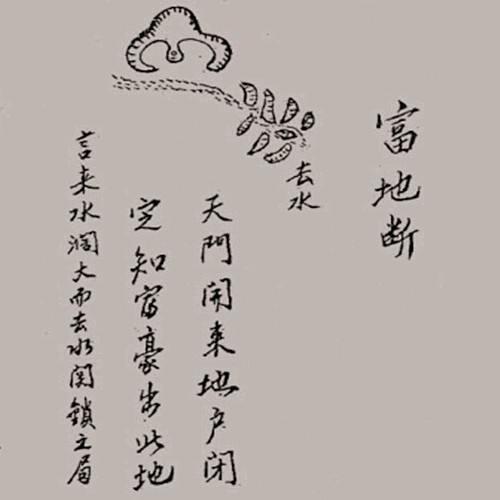 富地断
去水
天門開来地户闭
定知富豪出此地
言来水濶大而去水関鎖之局